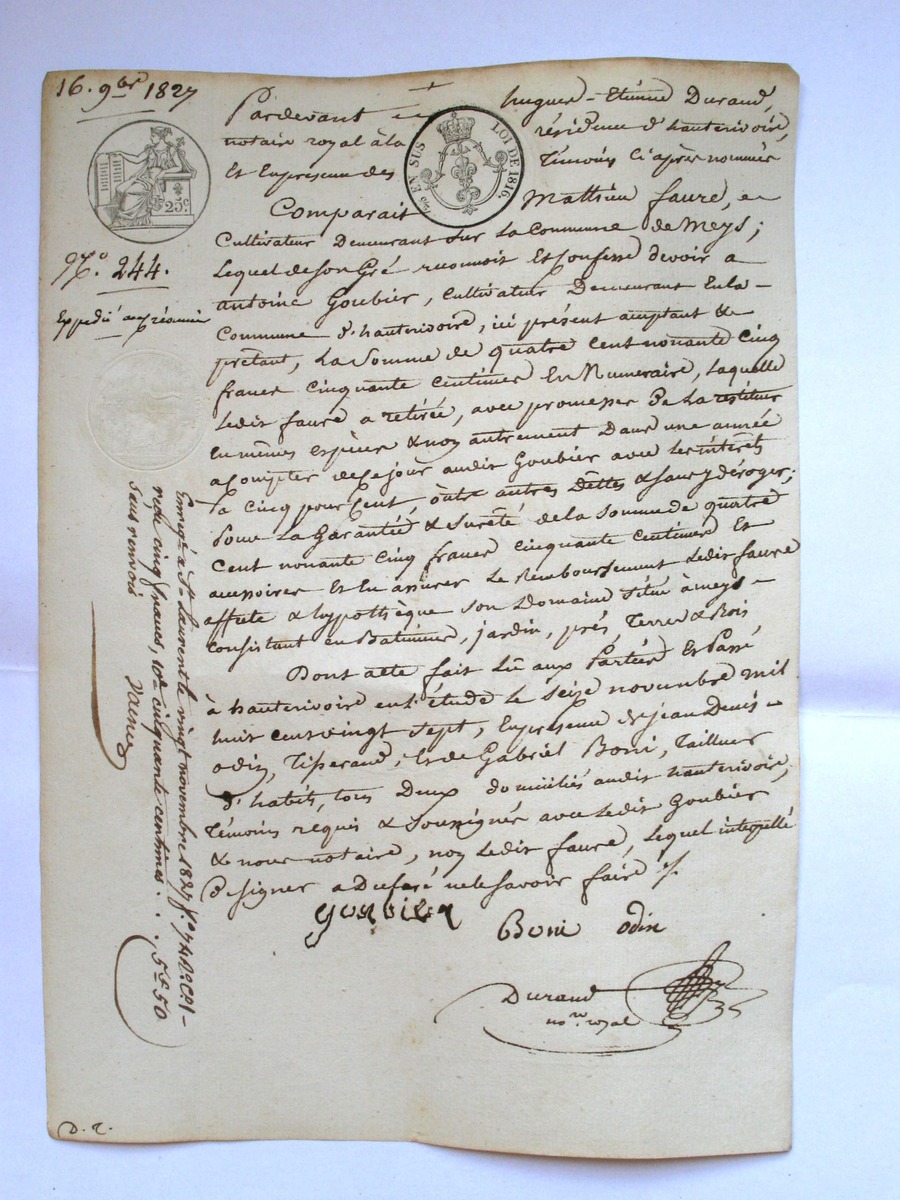 16. 9bre 1827
Pardevant Hugues-Etienne Durand,
notaire royal à la résidence d'hauterivoire,
Et En présence des Témoins Ci après nommés
EN SUS
LOI DE 1816.
25c
Comparait Mathieu faure,
Cultivateur Demeurant sur La Commune de Meys;
Lequel de Son Gré reconnoit Et Confesse devoir a
antoine Goubier, Cultivateur Demeurant En la
Commune d'hauterivoire, ici présent acceptant &
prétant, La Somme de quatre cent nonante cinq
francs cinquante centimes En Numeraire, Laquelle
Ledit faure a retirée, avec promesse de La restituer
En mêmes espèces & non autrement Dans une année
a Compter de Ce jour audit Goubier avec Les intérêts
à Cinq pour Cent, outre autres Dettes & sans y déroger;
Pour La Garantie & Sureté de la Somme de quatre
Cent nonante Cinq francs Cinquante Centimes Et
accessoires Et En assurer Le Remboursement Ledit faure
affecte & hypothèque Son Domaine Situé à meys
Consistant en Batiments, jardin, prés, Terres & Bois
Dont acte fait Lû aux Parties Et Passé
à hauterivoire en l'étude Le Seize novembre Mil
huit Cent vingt Sept, En présence de jean Denis
odin, Tisserand, Et de Gabriel Boni, Tailleur
d'habits, tous Deux domiciliés audit hauterivoire,
Témoins requis & Soussignés avec Ledit Goubier
& nous notaire, non Ledit faure, Lequel interpellé
De signer a Declaré ne le Savoir faire
Boni odin
Durand
no.re royal
No. 244.
Expédié au créancier
Enreg.é à St. Laurent le vingt novembre 1827 fo 74
reçu cinq francs, 10me cinquante centimes . . 5f 50
Sans renvoi
D. r.